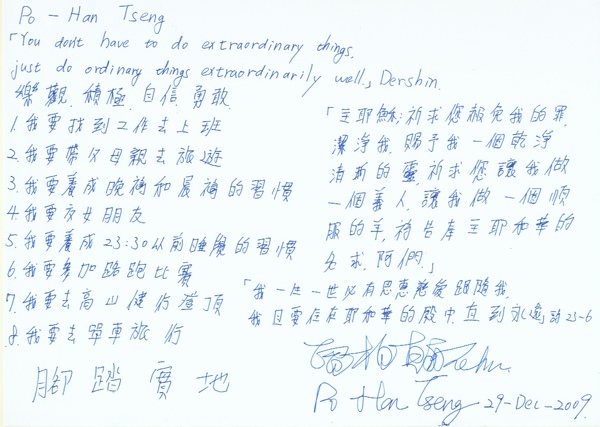 Po - Han Tseng
「You dont have to do extraordinary things,
just do ordinary things extraordinarily well.」Dershin.
樂觀.積極.自信.勇敢.
1.我要找到工作去上班
2.我要帶父母親去旅遊
3.我要養成晚禱和晨禱的習慣
4.我要交女朋友
5.我要養成23:30以前睡覺的習慣
6.我要參加路跑比賽
7.我要去高山健行登頂
8.我要去單車旅行
腳踏實地
「主耶穌:祈求您赦免我的罪.
潔淨我.賜予我一個乾淨
清新的靈.祈求您讓我做
一個義人.讓我做一個順
服的羊.禱告奉主耶和華的
名求.阿們.」
「我一生一世必有恩惠慈愛跟隨我.
我且要住在耶和華的殿中.直到永遠.詩23-6
Po Han Tseng 29-Dec-2009.